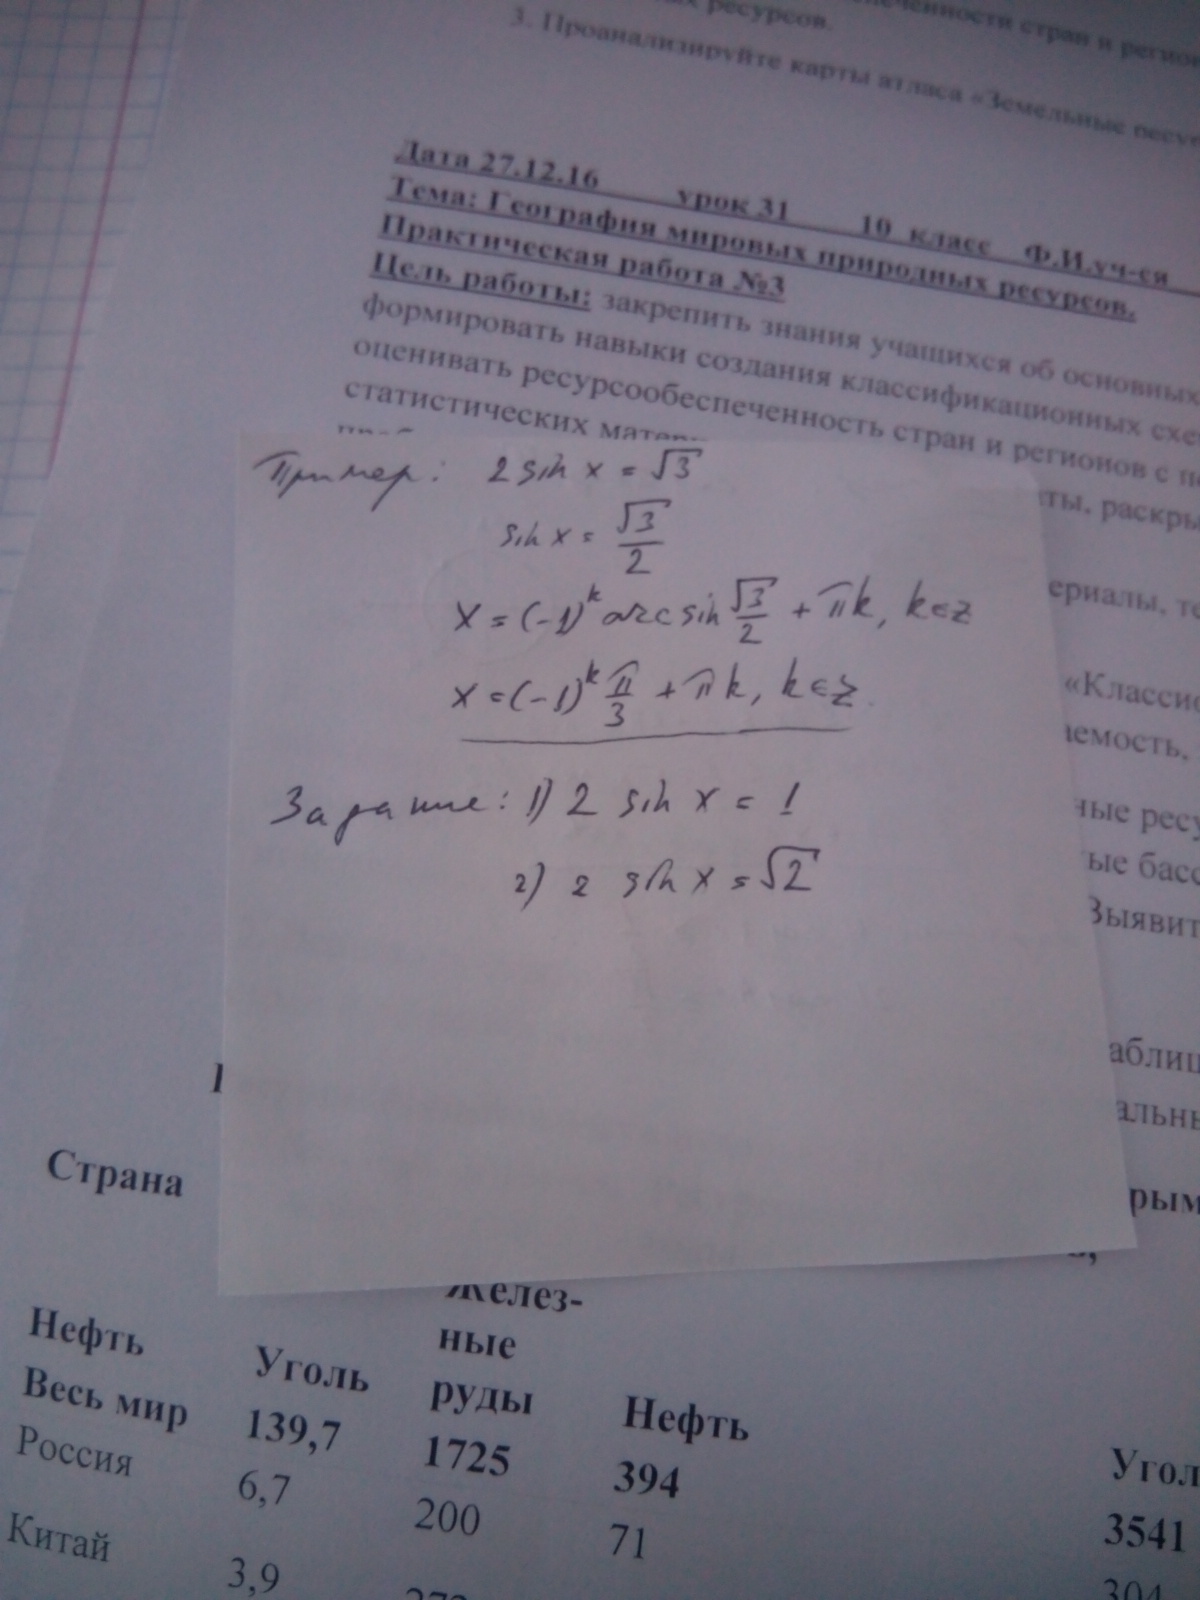 ресурсов.
3. Проанализируйте карты атласа «Земельные
Дата 27.12.16 урок 31 10 класс Ф.И.уч-ся
Тема: География мировых природных ресурсов.
Практическая работа №3
Цель работы: закрепить знания учащихся об основных
формировать навыки создания классификационных
оценивать ресурсообеспеченность стран и регионов с
статистических
Пример: 2 sin x = √3
sin x = √3/2
x = (-1)^k arcsin √3/2 + πk, k∈z
x = (-1)^k π/3 + πk, k∈z
Задание: 1) 2 sin x = 1
2) 2 sin x = √2
Страна
Желез-
ные
руды
Нефть Уголь Нефть Угол
Весь мир 139,7 1725 394 3541
Россия 6,7 200 71
Китай 3,9